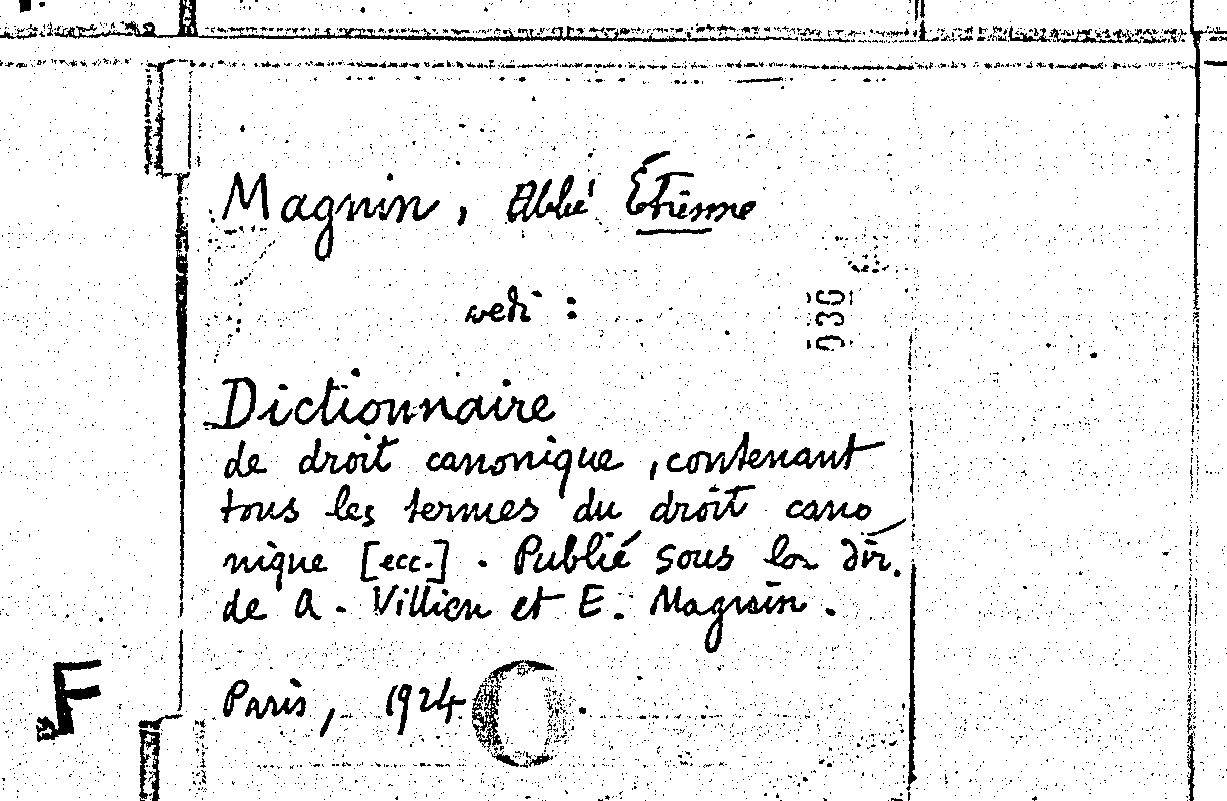 Magnin, Abbé Étienne
vedi :
036
Dictionnaire
de droit canonique, contenant
tous les termes du droit cano
nique [ecc.]. Publié sous la dir.
de A. Villien et E. Magnin.
F
Paris, 1924 .